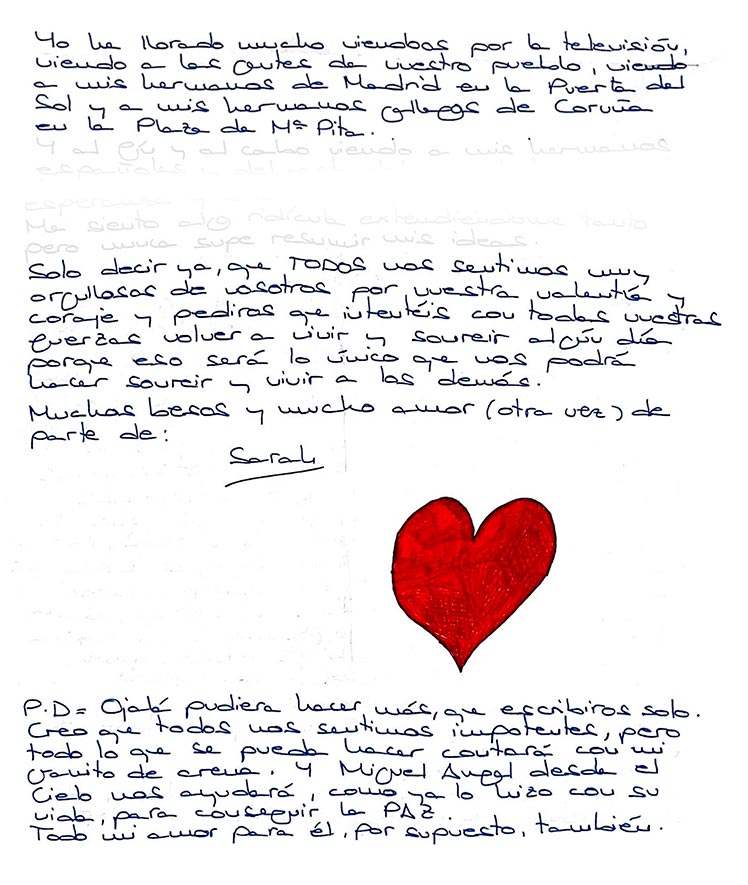 Yo he llorado mucho viendoos por la televisión,
viendo a las gentes de vuestro pueblo, viendo
a mis hermanos de Madrid en la Puerta del
Sol y a mis hermanos gallegos de Coruña
en la Plaza de Mª Pita.
Y al fin y al cabo viendo a mis hermanos
españoles
esperanza y
Me siento algo ridícula extendiendome tanto
pero nunca supe resumir mis ideas.
Solo decir ya, que TODOS nos sentimos muy
orgullosos de vosotros por vuestra valentía y
coraje y pediros que intentéis con todas vuestras
fuerzas volver a vivir y sonreir algún día
porque eso será lo único que nos podrá
hacer sonreir y vivir a los demás.
Muchos besos y mucho amor (otra vez) de
parte de:
Sarah
P.D= Ojalá pudiera hacer más, que escribiros solo.
Creo que todos nos sentimos impotentes, pero
todo lo que se pueda hacer contará con mi
granito de arena. Y Miguel Angel desde el
Cielo nos ayudará, como ya lo hizo con su
vida, para conseguir la PAZ.
Todo mi amor para él, por supuesto, también.